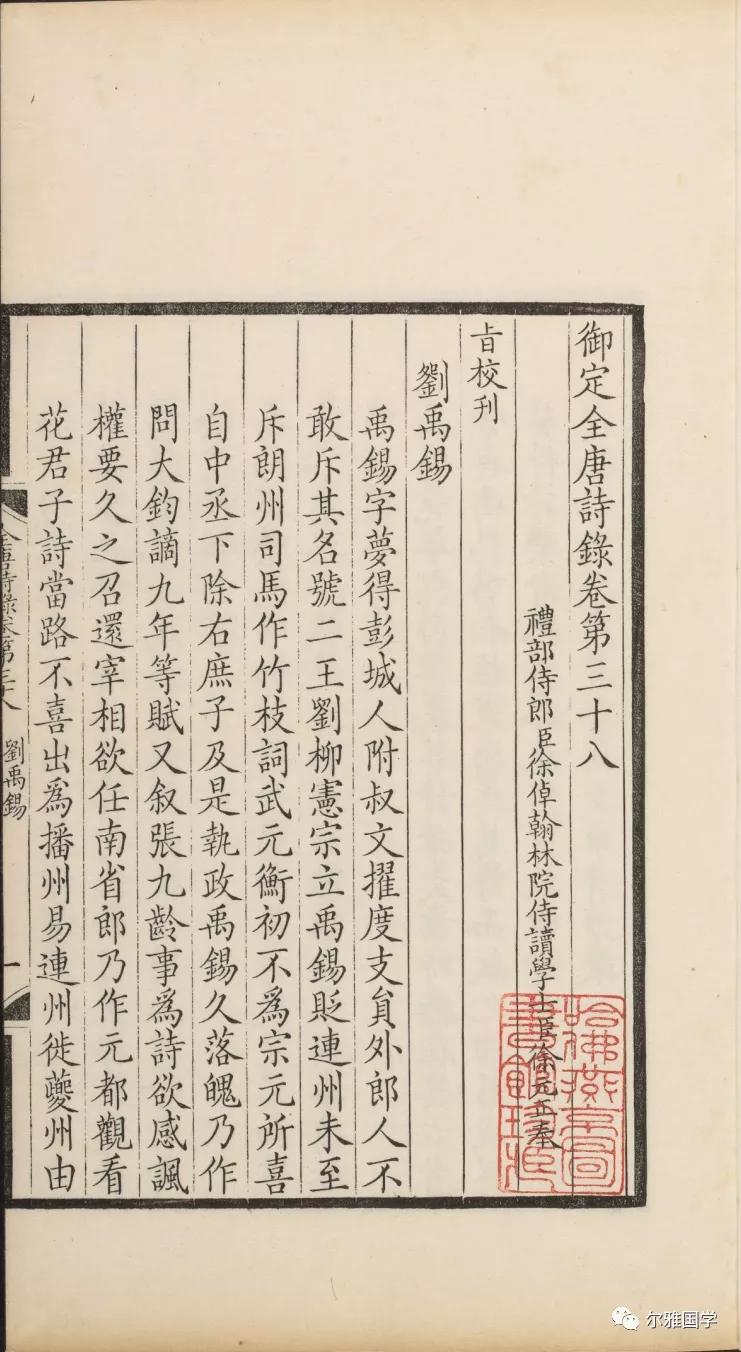 御定全唐詩錄卷第三十八
禮部侍郎臣徐倬翰林院侍讀學士臣徐元正奉
旨校刊
劉禹錫
禹錫字夢得彭城人附叔文擢度支員外郎人不
敢斥其名號二王劉柳憲宗立禹錫貶連州未至
斥朗州司馬作竹枝詞武元衡初不爲宗元所喜
自中丞下除右庶子及是執政禹錫久落魄乃作
問大鈞謫九年等賦又叙張九齡事爲詩欲感諷
權要久之召還宰相欲任南省郎乃作元都觀看
花君子詩當路不喜出爲播州易連州徙夔州由
全唐詩錄卷第三十八
劉禹錫
一
哈佛燕京圖
書館珍藏
尔雅国学